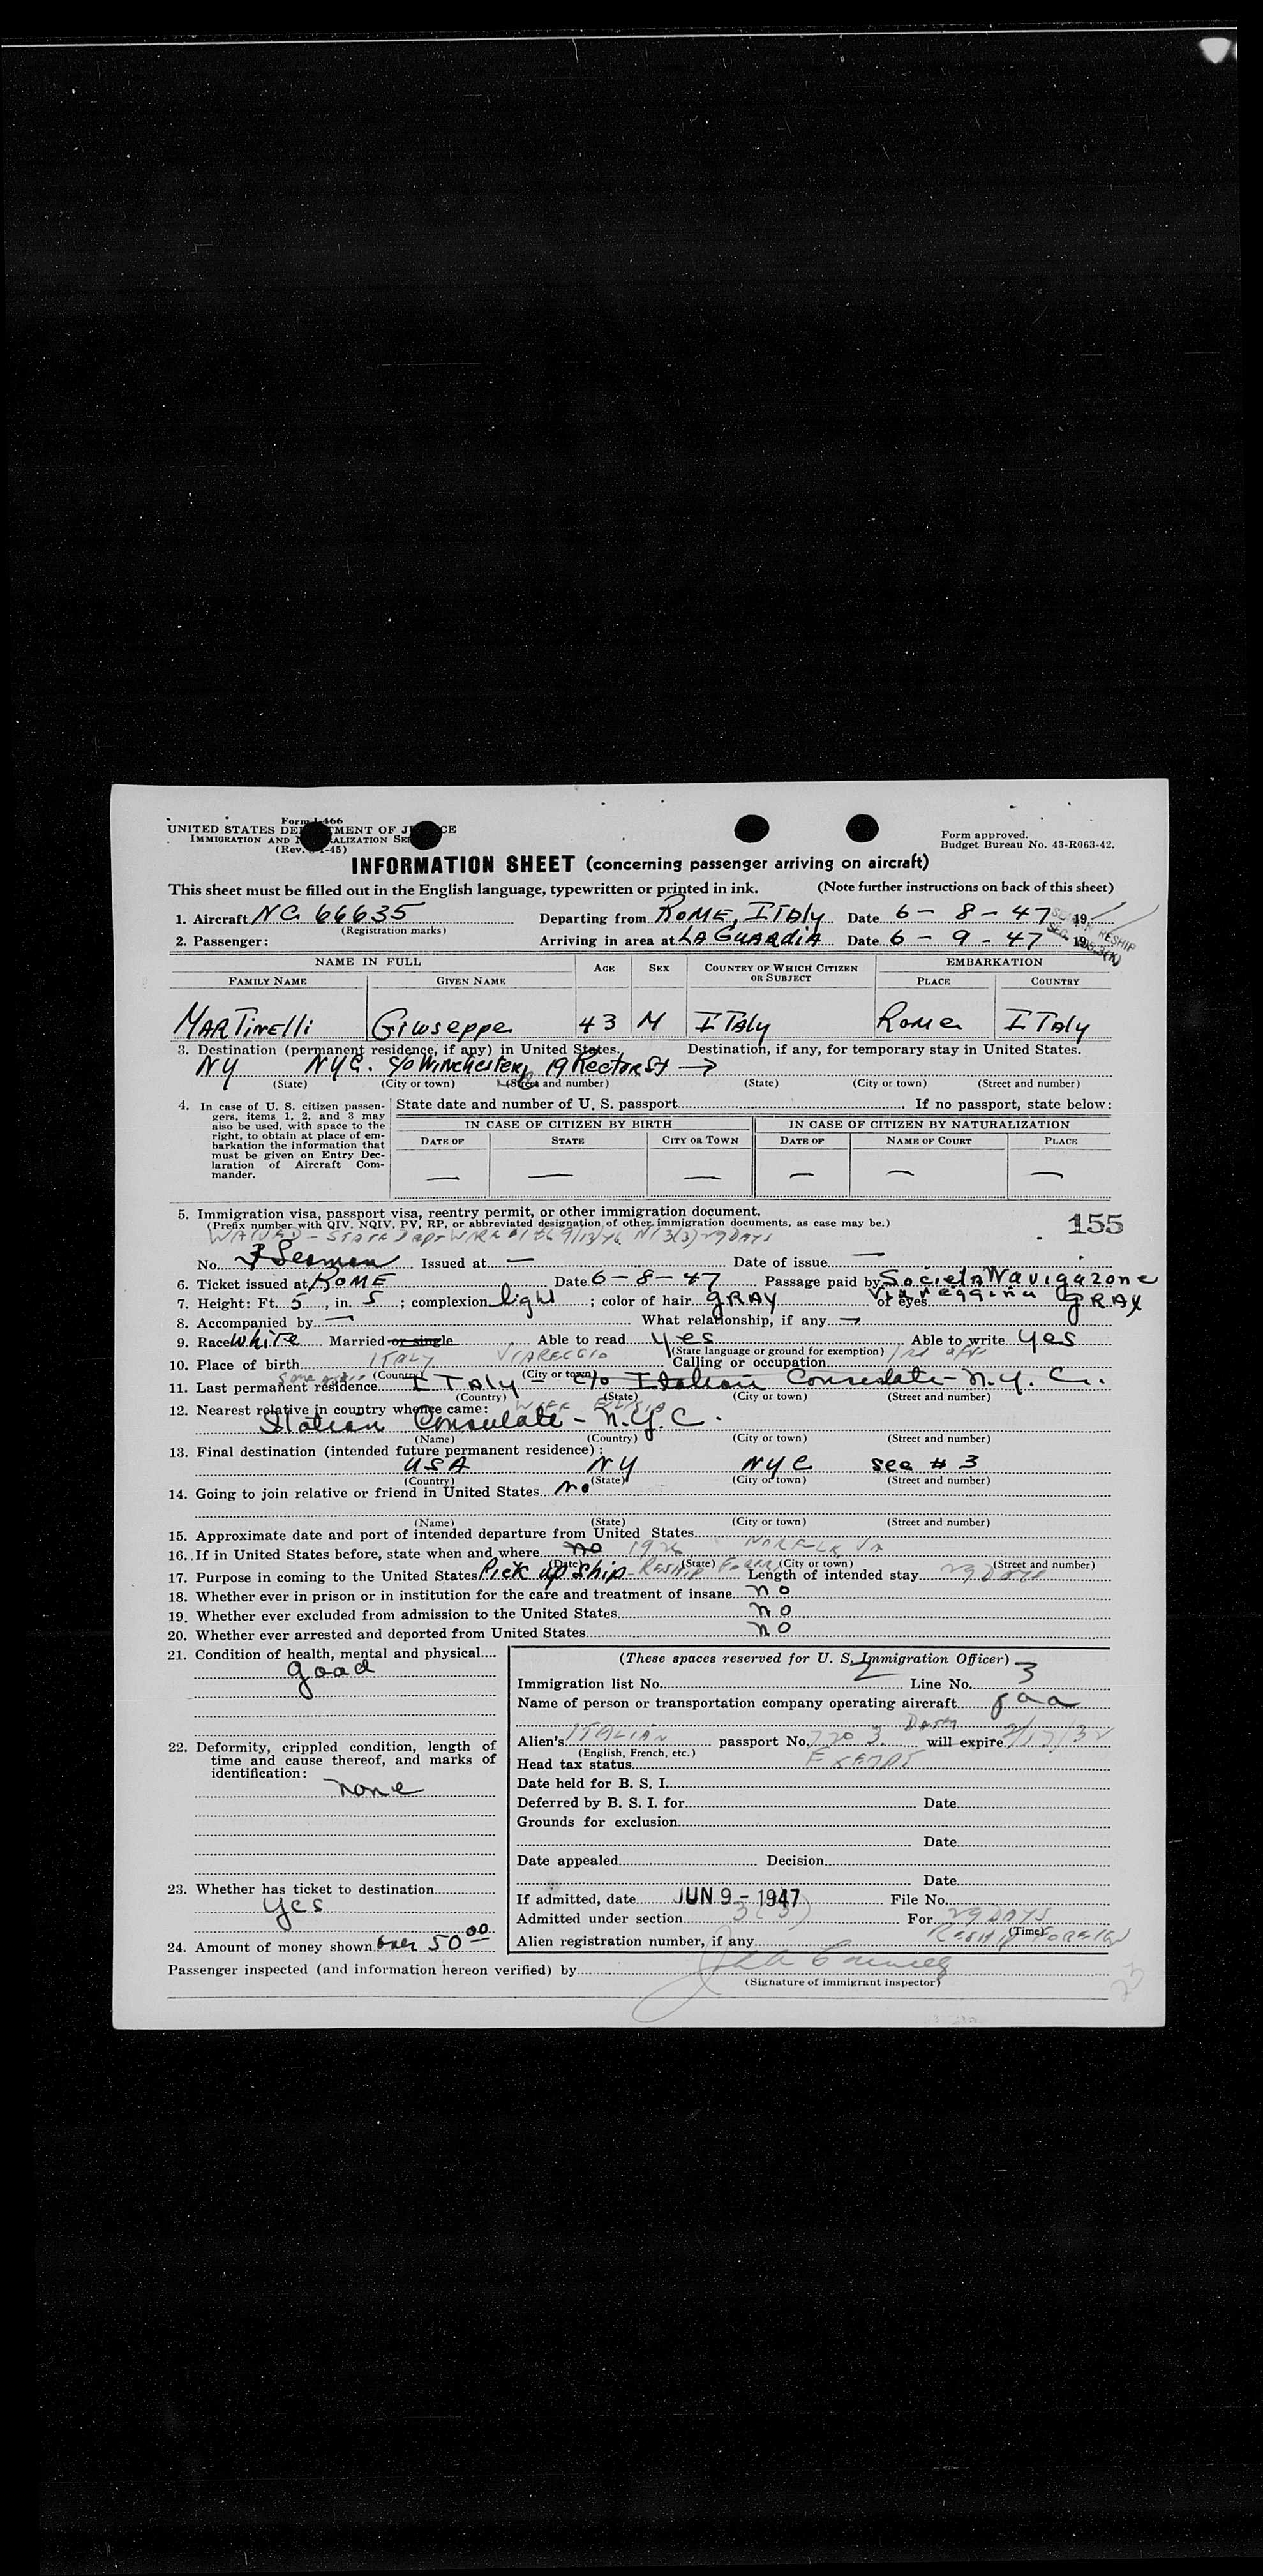 Form I-466
UNITED STATES DEPARTMENT OF JUSTICE
IMMIGRATION AND NATURALIZATION SERVICE
(Rev. -1-45)
Form approved.
Budget Bureau No. 43-R063-42.
INFORMATION SHEET (concerning passenger arriving on aircraft)
This sheet must be filled out in the English language, typewritten or printed in ink. (Note further instructions on back of this sheet)
1. Aircraft NC 66635 Departing from ROME, ITALY Date 6-8-47 19
(Registration marks)
2. Passenger: Arriving in area at LA GUARDIA Date 6-9-47 19
RESHIP
NAME IN FULL AGE SEX COUNTRY OF WHICH CITIZEN OR SUBJECT EMBARKATION
FAMILY NAME GIVEN NAME PLACE COUNTRY
MARTINELLI GIUSEPPE 43 M ITALY ROME ITALY
3. Destination (permanent residence, if any) in United States. Destination, if any, for temporary stay in United States.
NY NYC. c/o WINCHESTER, 19 Rector St →
(State) (City or town) (Street and number) (State) (City or town) (Street and number)
4. In case of U. S. citizen passengers, items 1, 2, and 3 may also be used, with space to the right, to obtain at place of embarkation the information that must be given on Entry Declaration of Aircraft Commander.
State date and number of U. S. passport If no passport, state below:
IN CASE OF CITIZEN BY BIRTH IN CASE OF CITIZEN BY NATURALIZATION
DATE OF STATE CITY OR TOWN DATE OF NAME OF COURT PLACE
— — — — — —
5. Immigration visa, passport visa, reentry permit, or other immigration document.
(Prefix number with QIV, NQIV, PV, RP, or abbreviated designation of other immigration documents, as case may be.)
155
WAIVED - STATE DEPT 9/13/46 3(3) 29 DAYS
No. Seaman Issued at — Date of issue —
6. Ticket issued at ROME Date 6-8-47 Passage paid by Societa Navigazone
Viareggina
7. Height: Ft. 5, in. 5; complexion light; color of hair GRAY of eyes GRAY
8. Accompanied by — What relationship, if any —
9. Race White Married or single Able to read yes Able to write yes
(State language or ground for exemption)
10. Place of birth ITALY VIAREGGIO Calling or occupation
(Country) (City or town)
11. Last permanent residence ITALY - c/o Italian Consulate - N.Y.C.
(Country) (State) (City or town) (Street and number)
12. Nearest relative in country whence came: WIFE
Italian Consulate - N.Y.C.
(Name) (Country) (City or town) (Street and number)
13. Final destination (intended future permanent residence):
USA NY NYC see # 3
(Country) (State) (City or town) (Street and number)
14. Going to join relative or friend in United States No
(Name) (State) (City or town) (Street and number)
15. Approximate date and port of intended departure from United States
16. If in United States before, state when and where no NORFOLK VA
(Date) (State) (City or town) (Street and number)
17. Purpose in coming to the United States Pick up ship - RESHIP Length of intended stay 29 DAYS
18. Whether ever in prison or in institution for the care and treatment of insane no
19. Whether ever excluded from admission to the United States no
20. Whether ever arrested and deported from United States no
21. Condition of health, mental and physical
good
22. Deformity, crippled condition, length of time and cause thereof, and marks of identification:
none
23. Whether has ticket to destination
yes
24. Amount of money shown over 50 00
(These spaces reserved for U. S. Immigration Officer)
Immigration list No. 2 Line No. 3
Name of person or transportation company operating aircraft paa
Alien's ITALIAN passport No. will expire
(English, French, etc.)
Head tax status EXEMPT
Date held for B. S. I.
Deferred by B. S. I. for Date
Grounds for exclusion
Date
Date appealed Decision
Date
If admitted, date JUN 9 - 1947 File No.
Admitted under section 3(3) For 29 DAYS
(Time)
RESHIP FOREIGN
Alien registration number, if any
Passenger inspected (and information hereon verified) by
(Signature of immigrant inspector)